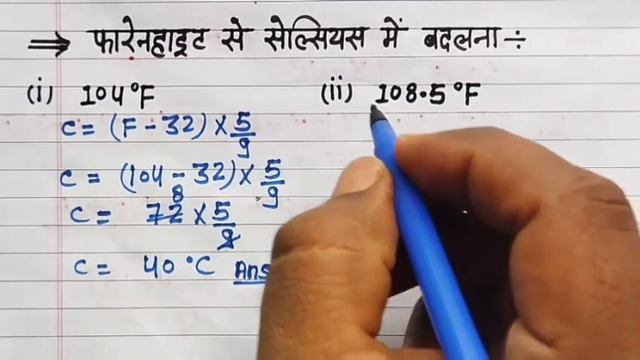 ⇒ फारेनहाइट से सेल्सियस में बदलना ÷
(i) 104°F (ii) 108.5°F
C = (F - 32) × 5/9
C = (104 - 32) × 5/9
C = 72 8 × 5/9
C = 40 °C Ans